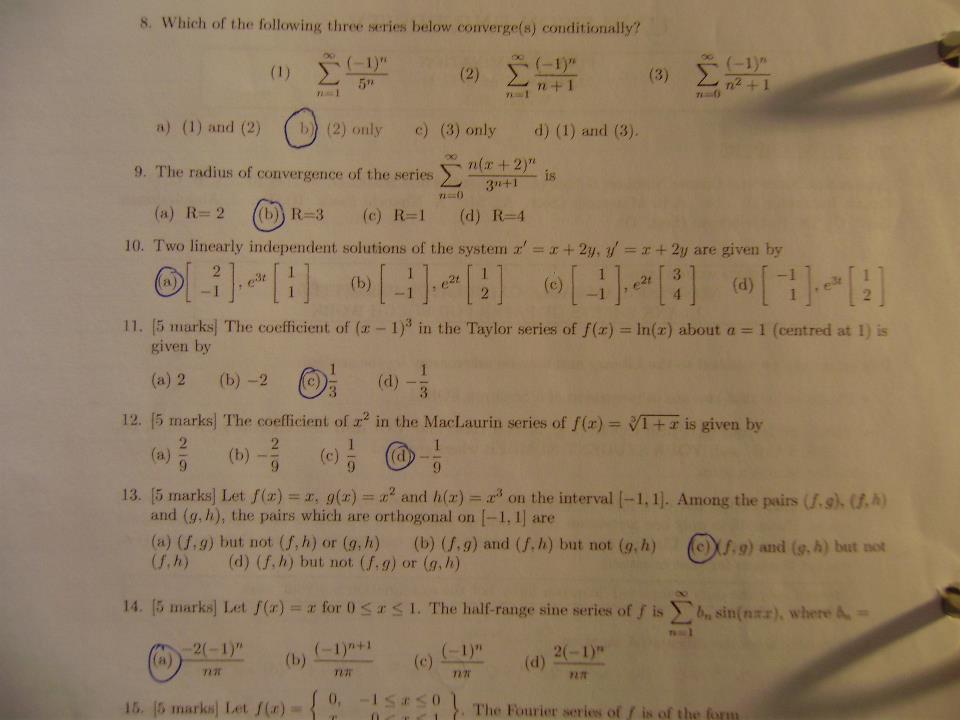 8. Which of the following three series below converge(s) conditionally?
(1) ∑_{n=1}^{∞} (-1)^n / 5^n (2) ∑_{n=1}^{∞} (-1)^n / (n + 1) (3) ∑_{n=0}^{∞} (-1)^n / (n^2 + 1)
a) (1) and (2) b) (2) only c) (3) only d) (1) and (3).
9. The radius of convergence of the series ∑_{n=0}^{∞} n(x + 2)^n / 3^{n+1} is
(a) R= 2 (b) R=3 (c) R=1 (d) R=4
10. Two linearly independent solutions of the system x′ = x + 2y, y′ = x + 2y are given by
(a) [2 -1], e^{3t} [1 1] (b) [1 -1], e^{2t} [1 2] (c) [1 -1], e^{2t} [3 4] (d) [-1 1], e^{3t} [1 2]
11. [5 marks] The coefficient of (x − 1)^3 in the Taylor series of f(x) = ln(x) about a = 1 (centred at 1) is
given by
(a) 2 (b) −2 (c) 1/3 (d) −1/3
12. [5 marks] The coefficient of x^2 in the MacLaurin series of f(x) = ∛(1 + x) is given by
(a) 2/9 (b) −2/9 (c) 1/9 (d) −1/9
13. [5 marks] Let f(x) = x, g(x) = x^2 and h(x) = x^3 on the interval [−1, 1]. Among the pairs (f, g), (f, h)
and (g, h), the pairs which are orthogonal on [−1, 1] are
(a) (f, g) but not (f, h) or (g, h) (b) (f, g) and (f, h) but not (g, h) (c) (f, g) and (g, h) but not
(f, h) (d) (f, h) but not (f, g) or (g, h)
14. [5 marks] Let f(x) = x for 0 ≤ x ≤ 1. The half-range sine series of f is ∑_{n=1}^{∞} b_n sin(nπx), where b_n =
(a) −2(−1)^n / nπ (b) (−1)^{n+1} / nπ (c) (−1)^n / nπ (d) 2(−1)^n / nπ
15. [5 marks] Let f(x) = { 0, −1 ≤ x ≤ 0 }. The Fourier series of f is of the form